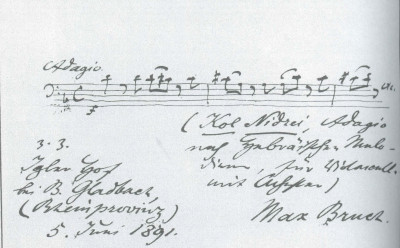 Adagio.
(Kol Nidrei, Adagio
nach Hebräischen Melo-
dieen, für Violoncell
mit Orchester)
z. Z.
Igler Hof
bei B. Gladbach,
(Rheinprovinz)
5. Juni 1891.
Max Bruch.